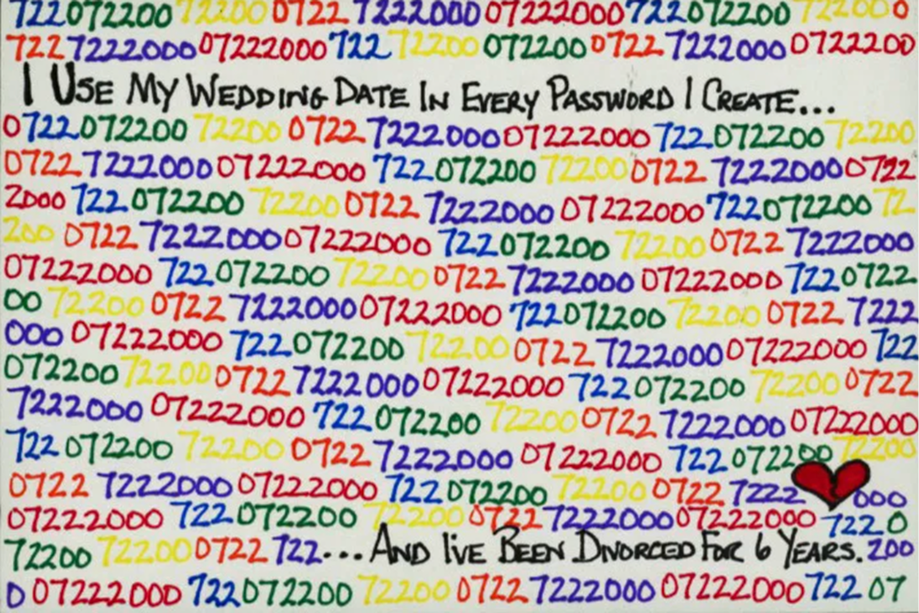 722072200 72200 0722 7222000 07222000 722072200 72200 0
722 7222000 07222000 722 72200 072200 0722 7222000 0722200
I USE MY WEDDING DATE IN EVERY PASSWORD I CREATE...
0722072200 72200 0722 7222000 07222000 722 072200 72200
0722 7222000 07222000 722 072200 72200 0722 7222000 0722
2000 722 072200 72200 0722 7222000 07222000 722 072200 72
200 0722 7222000 07222000 722 072200 72200 0722 7222000
07222000 722 072200 72200 0722 7222000 07222000 722 0722
00 72200 0722 7222000 07222000 722 072200 72200 0722 7222
000 07222000 722 072200 72200 0722 7222000 07222000 722
072200 72200 0722 7222000 07222000 722 072200 72200 0722
7222000 07222000 722 072200 72200 0722 7222000 07222000
722 072200 72200 0722 7222000 07222000 722 072200 72200
0722 7222000 07222000 722 072200 72200 0722 7222 000
07222000 722 072200 72200 0722 7222000 07222000 722 0
72200 72200 0722 722... AND I'VE BEEN DIVORCED FOR 6 YEARS. 200
0 07222000 722 072200 72200 0722 7222000 07222000 722 07